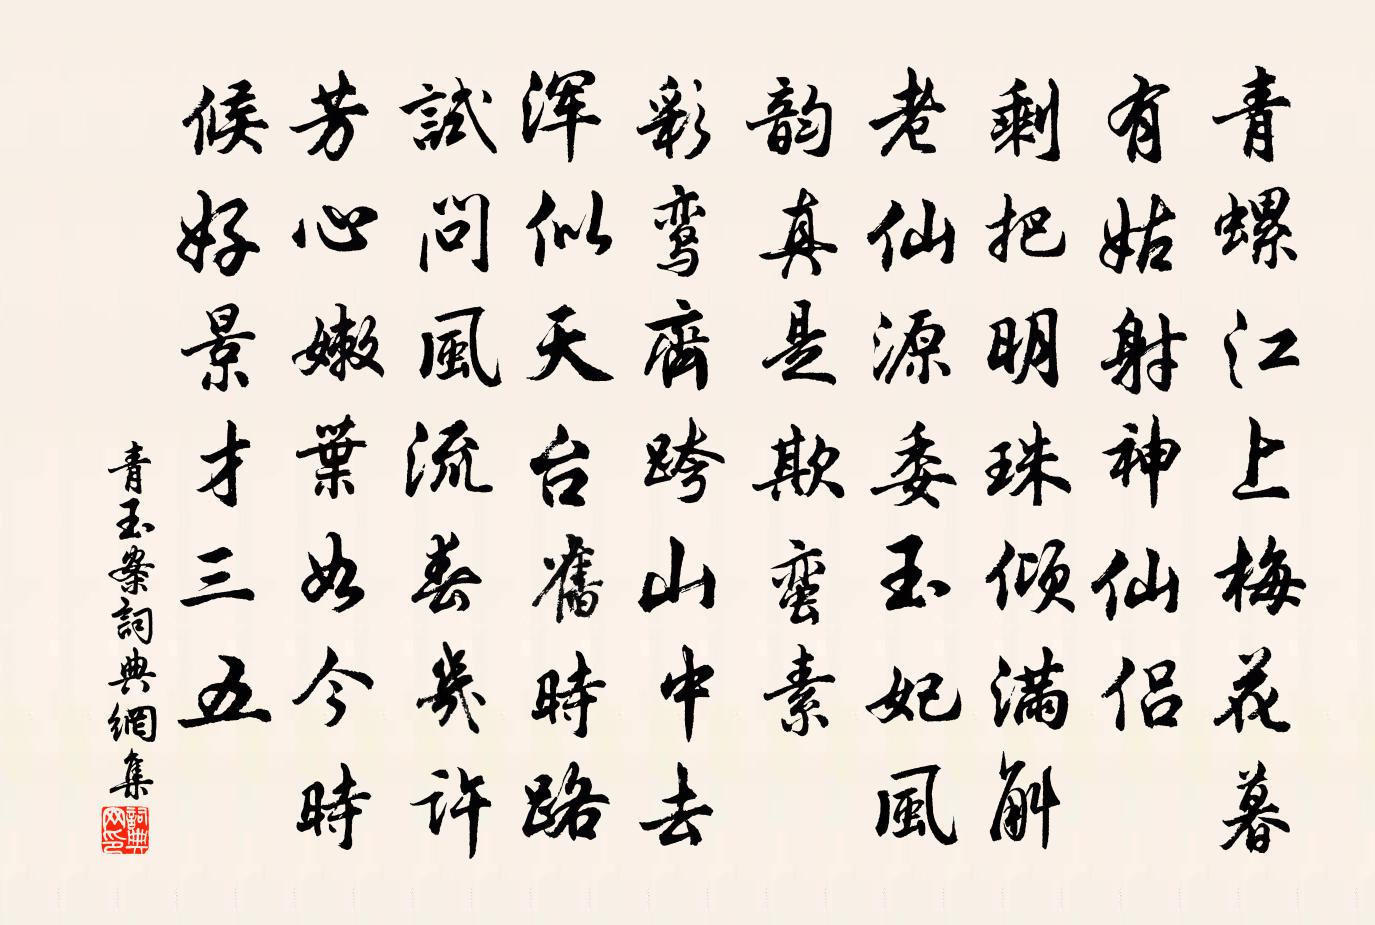 青螺江上梅花暮
有姑射神仙侣
剩把明珠倾满斛
老仙源委玉妃風
韵真是欺蛮素
彩鸾齊跨山中去
浑似天台舊時路
試問風流春幾許
芳心嫩葉如今時
候好景才三五
青玉案詞典網集
詞典網印